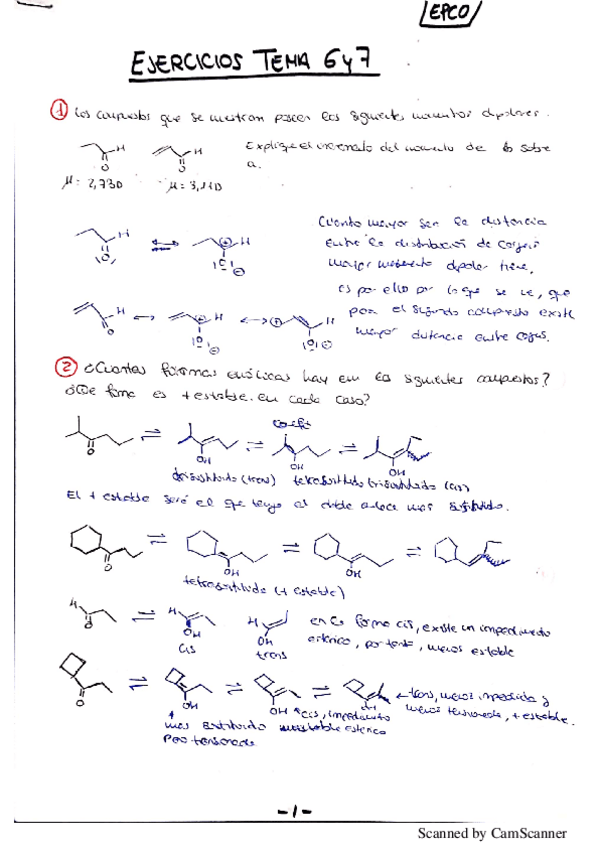 EPCO
EJERCICIOS TEMA 6 y 7
① Los compuestos que se muestran poseen los siguientes momentos dipolares.
H
O
H
O
Explique el incremento del momento de b sobre
a.
μ = 2,73D
μ = 3,11D
Cuanto mayor sea la distancia
entre la distribución de cargas
mayor momento dipolar tiene,
es por ello por lo que se ve, que
para el segundo compuesto existe
mayor distancia entre cargas.
② ¿Cuántas formas enólicas hay en los siguientes compuestos?
¿Qué forma es + estable en cada caso?
O
OH
OH
OH
trisustituido (trans) tetrasustituido trisustituido (cis)
El + estable será el que tenga el doble enlace más sustituido.
O
OH
OH
OH
tetrasustituido (+ estable)
H
O
H
OH
cis
H
OH
trans
en la forma cis, existe un impedimento
estérico, por tanto, menos estable
O
OH
OH
OH
trans, menos impedida y
menos tensionada, + estable.
cis, impedimento
estérico
más sustituido
pero tensionado
-1-
Scanned by CamScanner